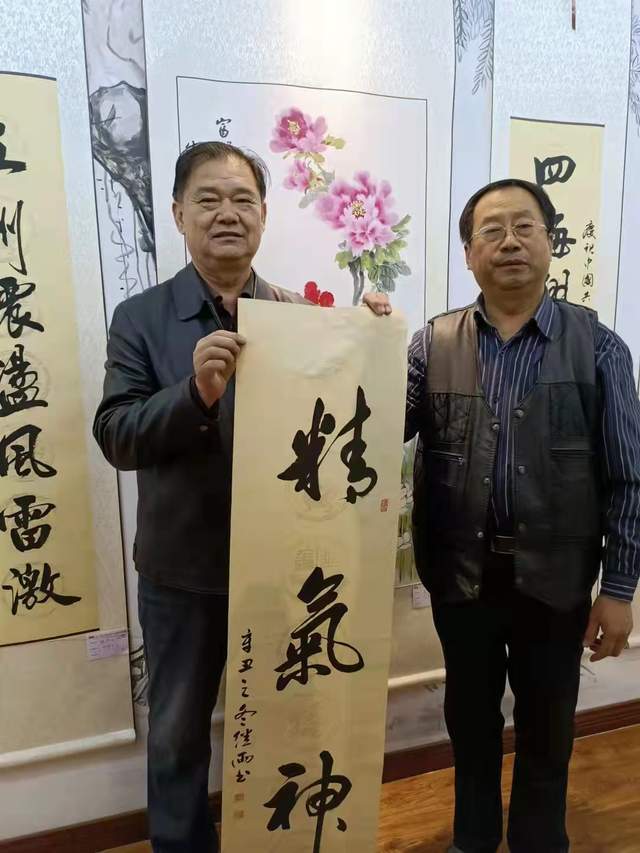 精氣神
辛丑之冬佳雨书
五洲震盪風雷激
四海
慶祝中國共
富